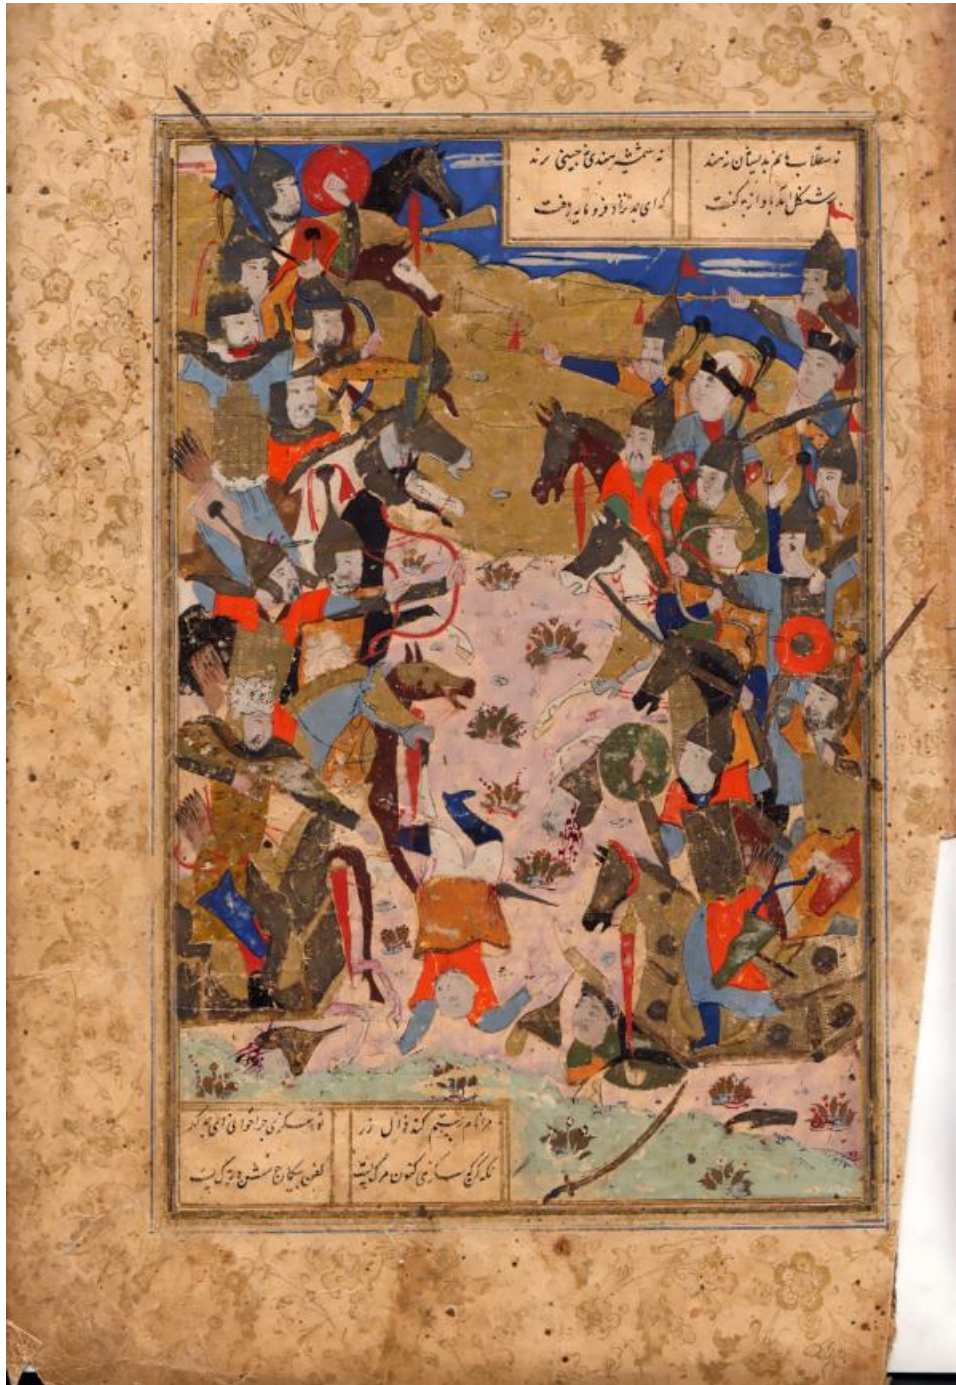 نه سقلاب مانم بدیشان نه هند نه شمشیر هندی نه چینی پرند
بر شنکل آمد باواز کفت که ای بدنژاد فرومایه جفت
مرا نام رستم کند زال زر تو سکزی چرا خوانی ای بدکهر
کنون مرک تست کفن جوشن و ترک تست